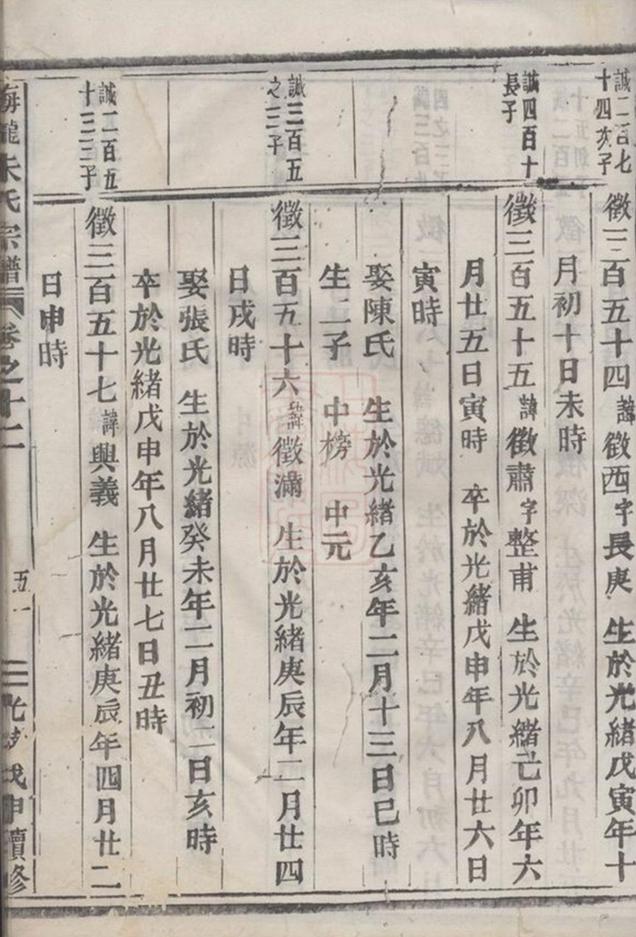 誠二百七十四亥子
徵三百五十四諱徵西字長庚 生於光緒戊寅年十
月初十日未時
誠四百十長子
徵三百五十五諱徵肅字整甫 生於光緒己卯年六
月廿五日寅時 卒於光緒戊申年八月廿六日
寅時
娶陳氏 生於光緒乙亥年二月十三日巳時
生二子 中榜 中元
誠三百五之三子
徵三百五十六諱徵滿 生於光緒庚辰年二月廿四
日戌時
娶張氏 生於光緒癸未年二月初二日亥時
卒於光緒戊申年八月廿七日丑時
誠二百五十三三子
徵三百五十七諱興義 生於光緒庚辰年四月廿二
日申時
朱氏宗譜 卷之十二 五一 光緒戊申續修